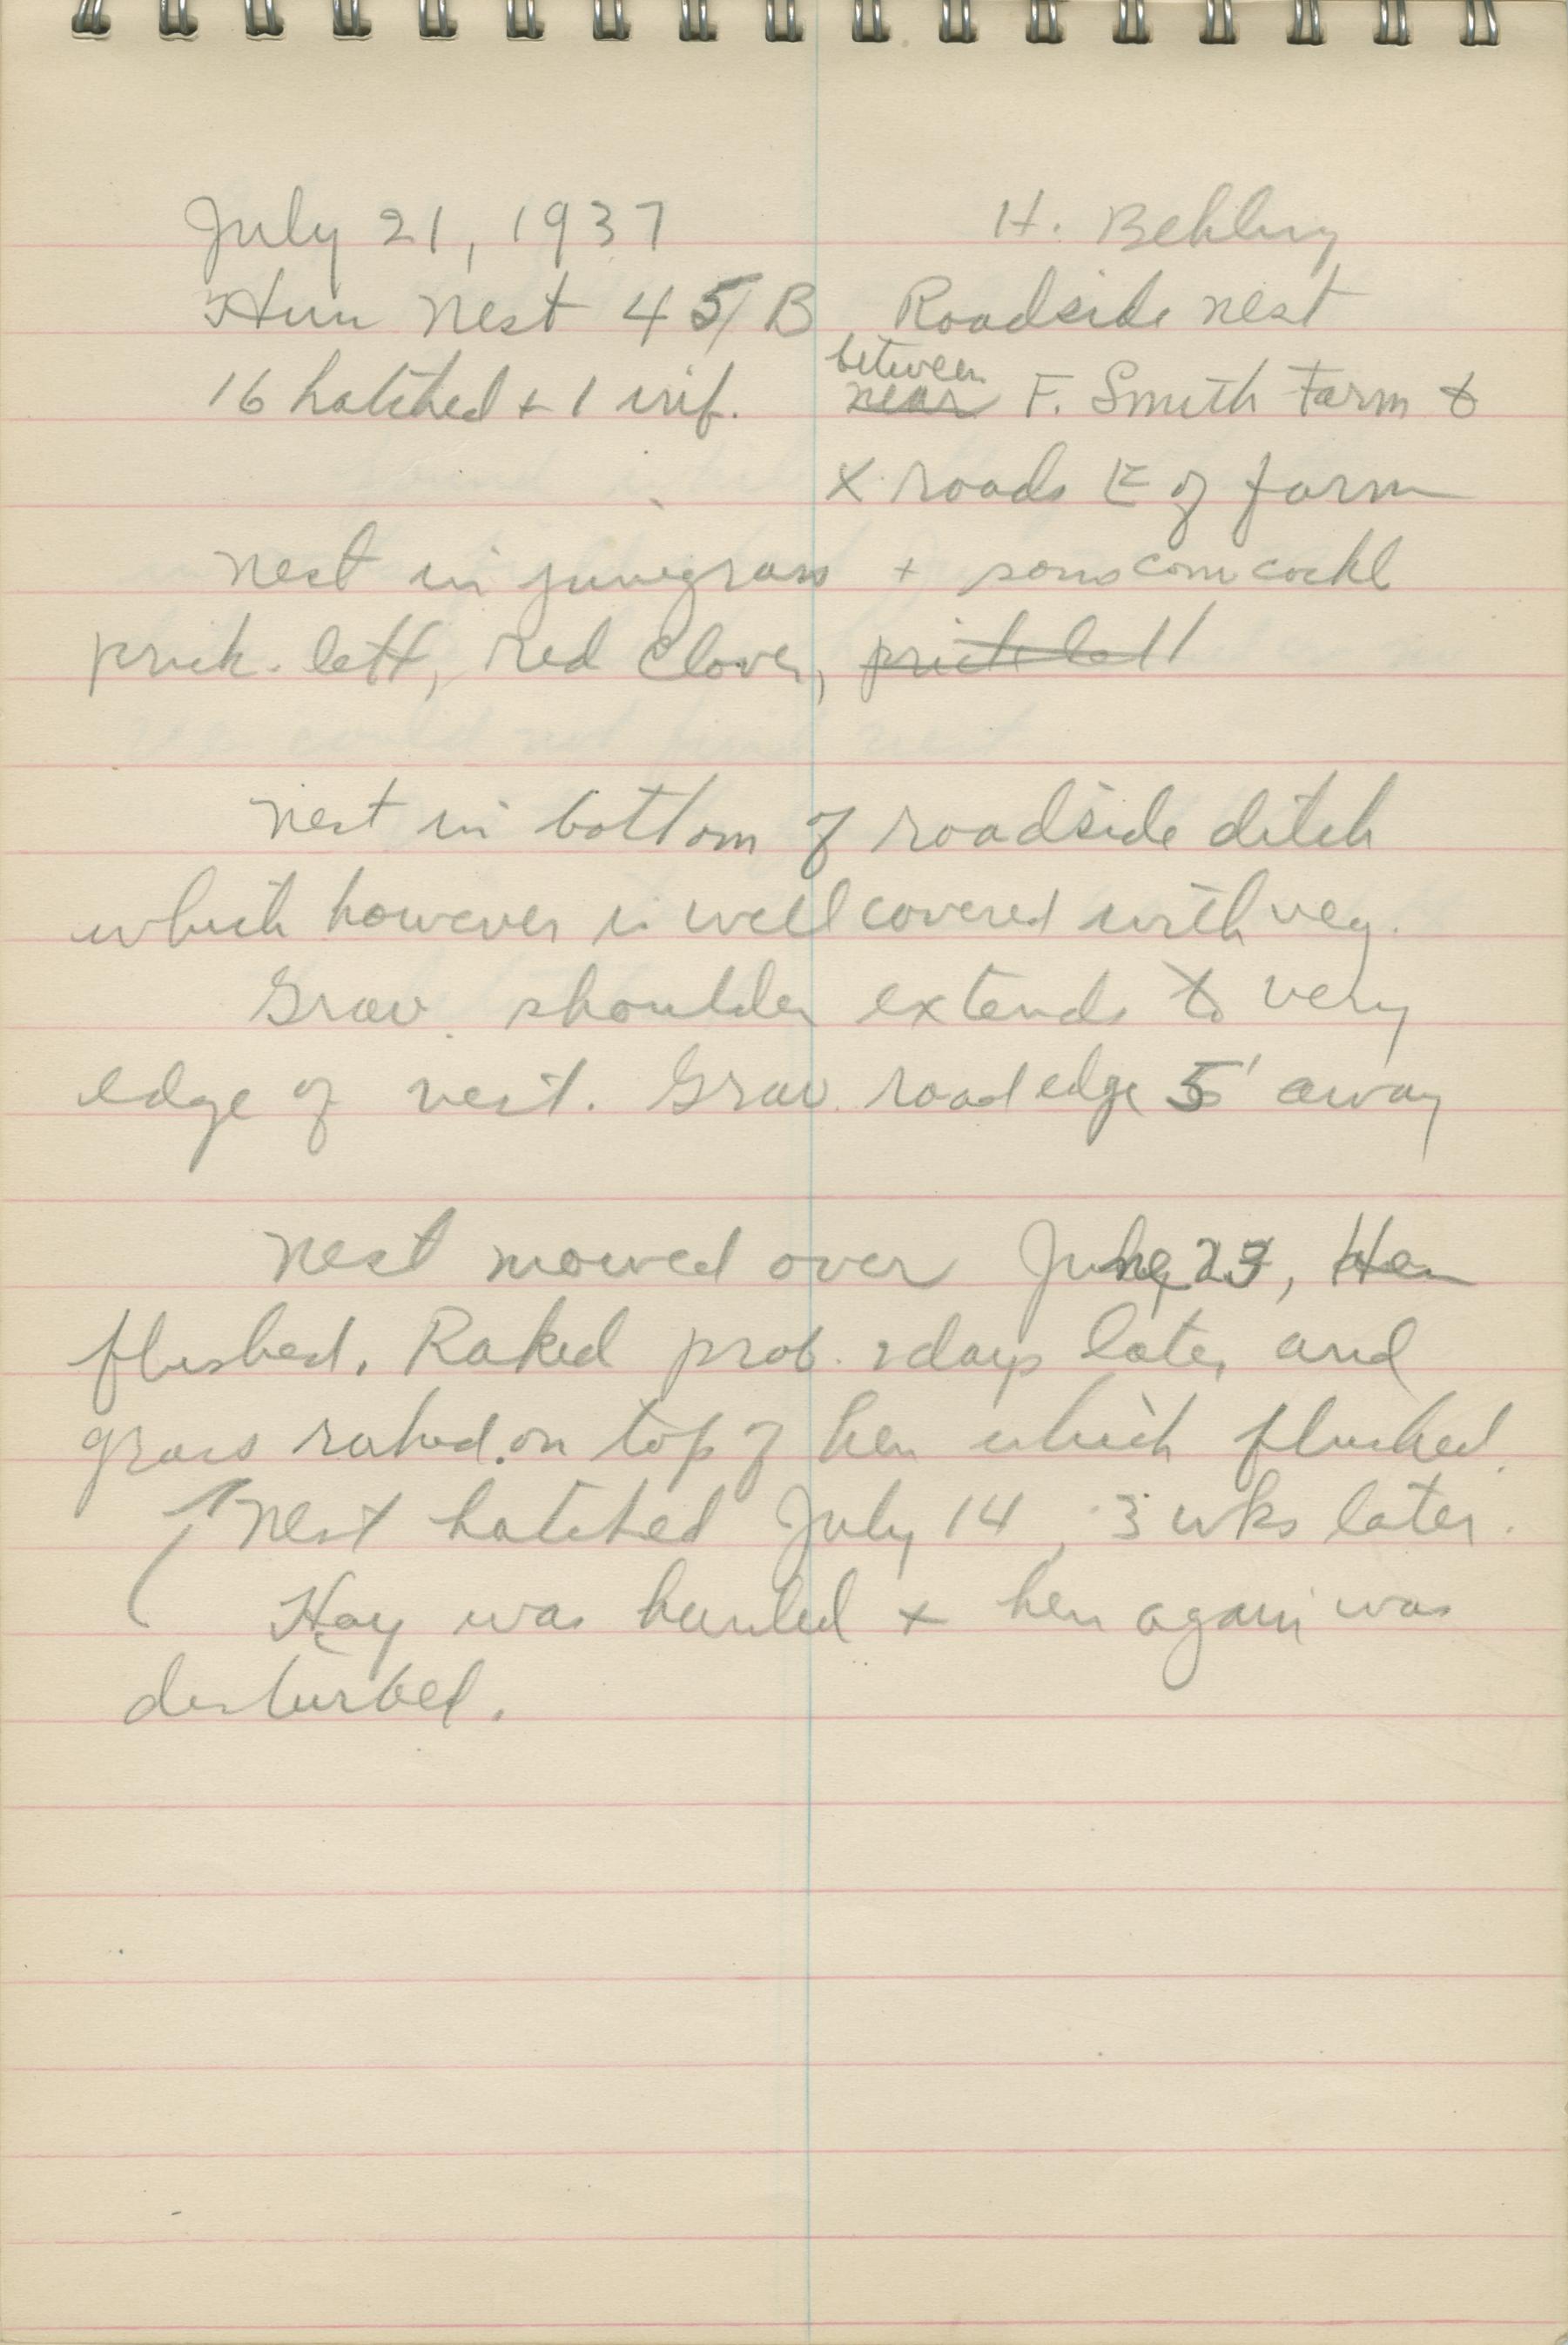 July 21, 1937 H. Behling
Hun Nest 45/B Roadside nest
16 hatched + 1 inf. between ~~near~~ F. Smith Farm &
X roads E of farm
Nest in junegrass + some com cockl
prick. lett, red clover, ~~prick lett~~
Nest in bottom of roadside ditch
which however is well covered with veg.
Grav. shoulder extends to very
edge of nest. Grav. road edge 5' away
Nest mowed over June 23, Hen
flushed. Raked prob. 2 days later and
grass raked on top of hen which flushed.
Nest hatched July 14, 3 wks later.
Hay was hauled + hen again was
disturbed.